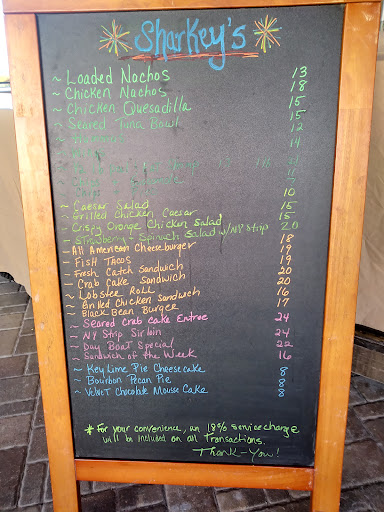 Sharkey's
~ Loaded Nachos 13
~ Chicken Nachos 18
~ Chicken Quesadilla 15
~ Seared Tuna Bowl 15
12
14
11
7
10
~ Caesar Salad 15
~ Grilled Chicken Caesar 15
~ Crispy Orange Chicken Salad 20
~ Strawberry + Spinach Salad w/NY Strip
- All American Cheeseburger 18
- Fish Tacos 19
- Fresh Catch Sandwich 19
- Crab Cake Sandwich 20
- Lobster Roll 20
- Grilled Chicken Sandwich 16
- Black Bean Burger 17
~ Seared Crab Cake Entree 24
~ NY Strip Sirloin 24
~ Day Boat Special 22
~ Sandwich of the Week 16
~ Key Lime Pie Cheesecake 8
~ Bourbon Pecan Pie 8
~ Velvet Chocolate Mousse Cake 8
* For your convenience, an 18% service charge
will be included on all transactions.
Thank-You!